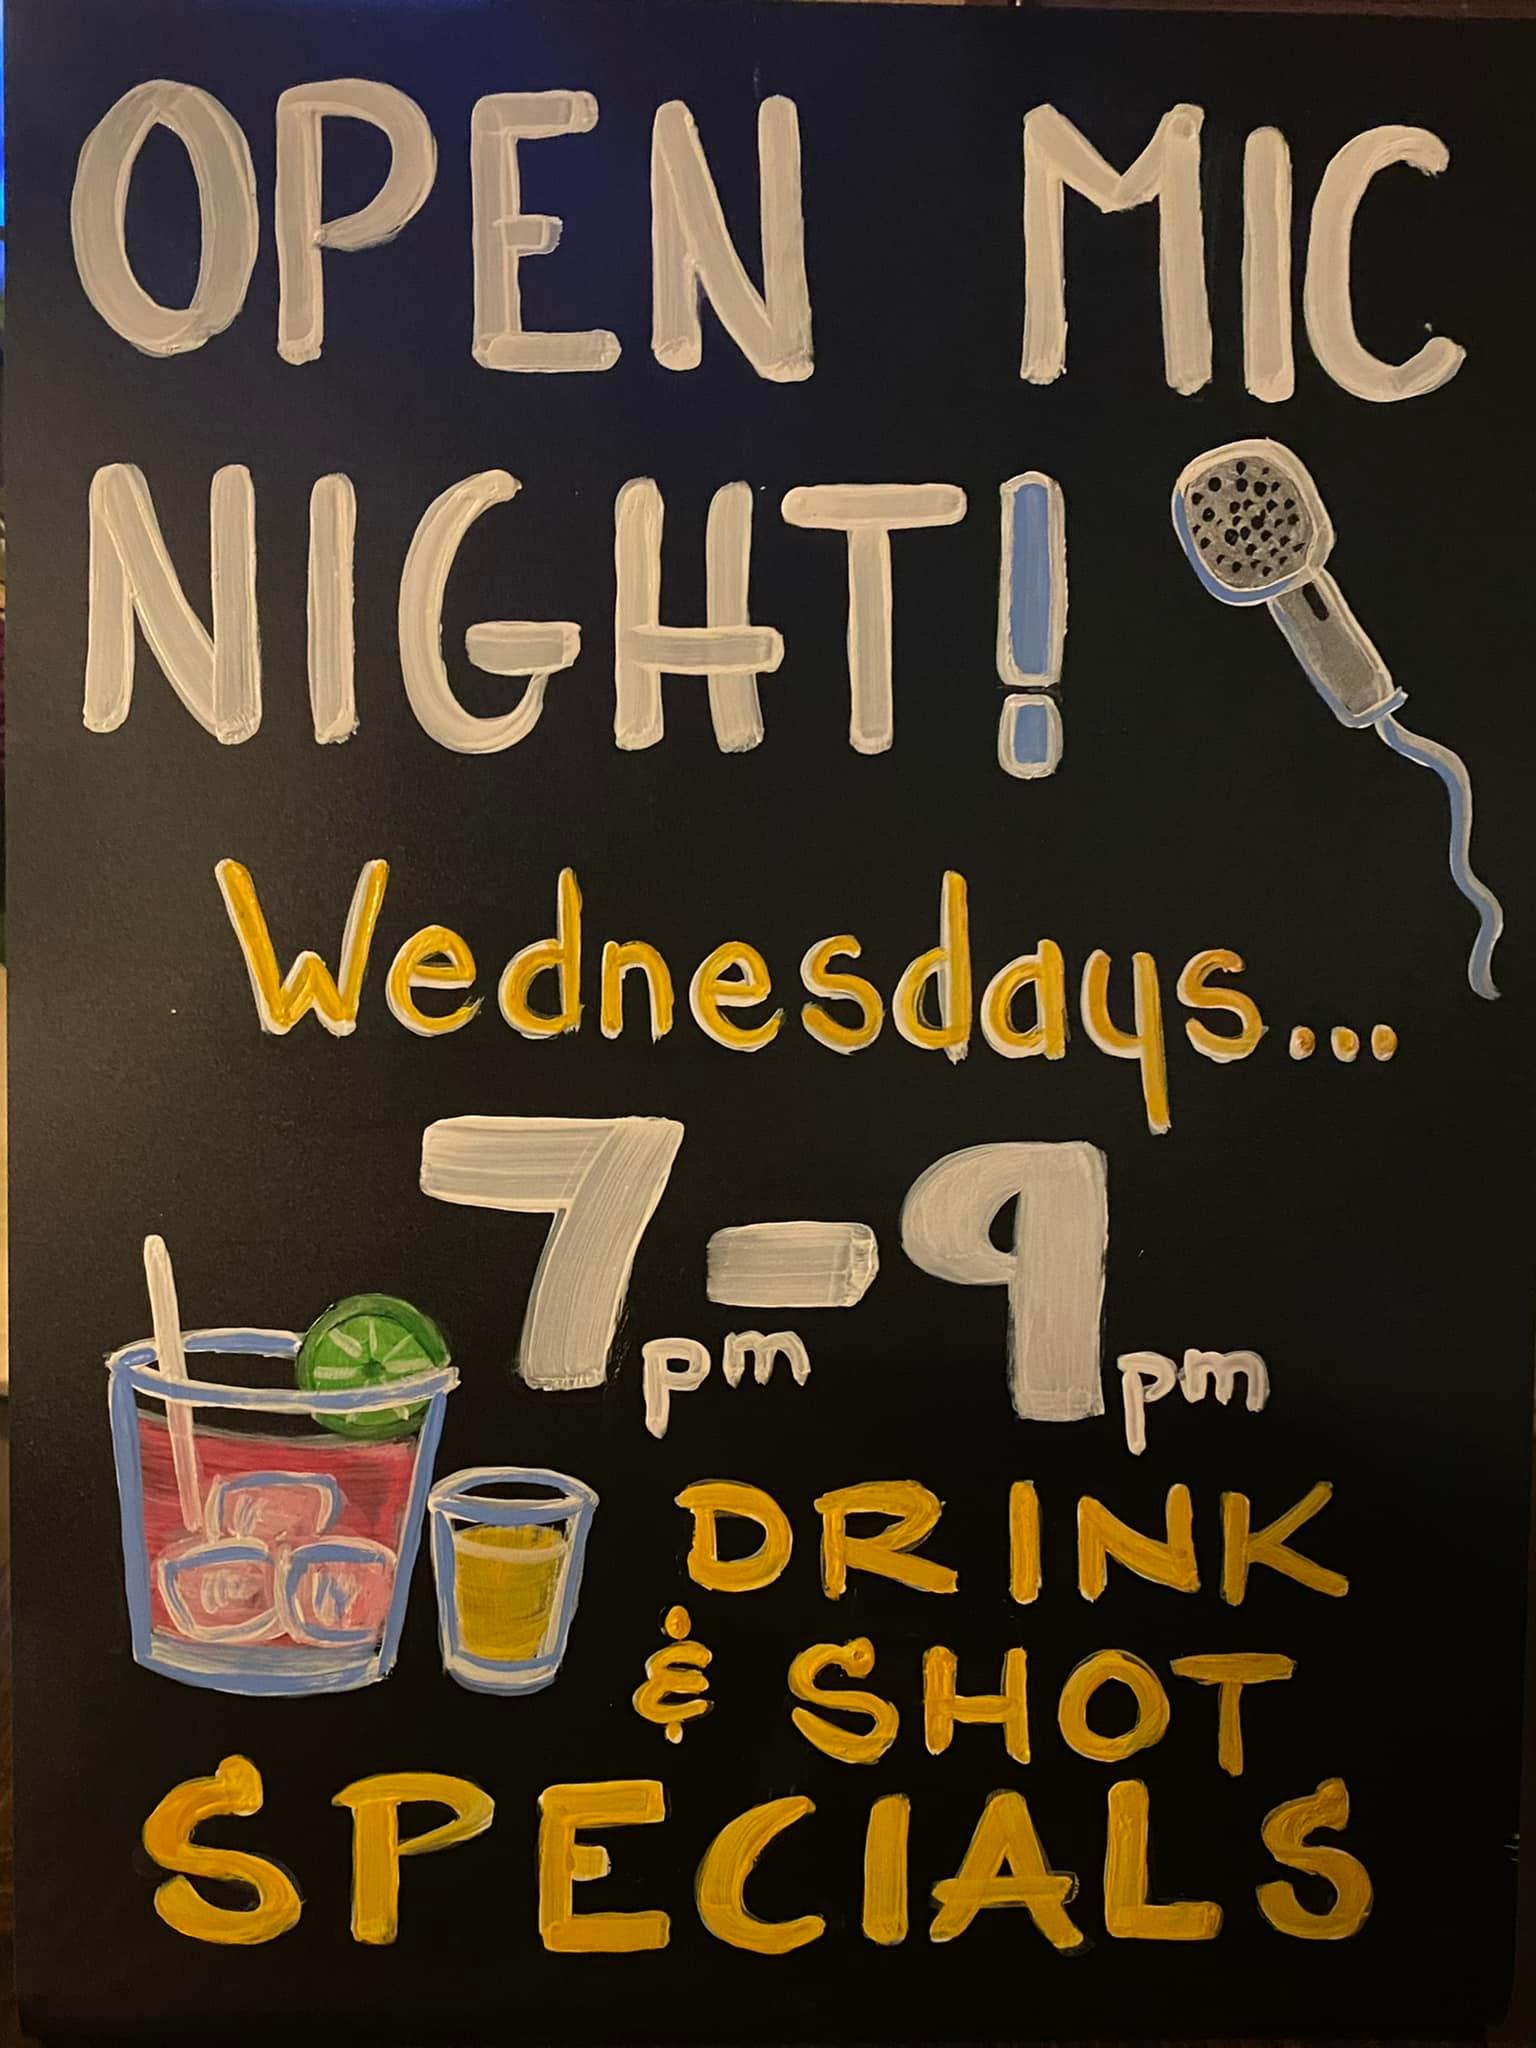 OPEN MIC
NIGHT!
Wednesdays...
7pm-9pm
DRINK
& SHOT
SPECIALS